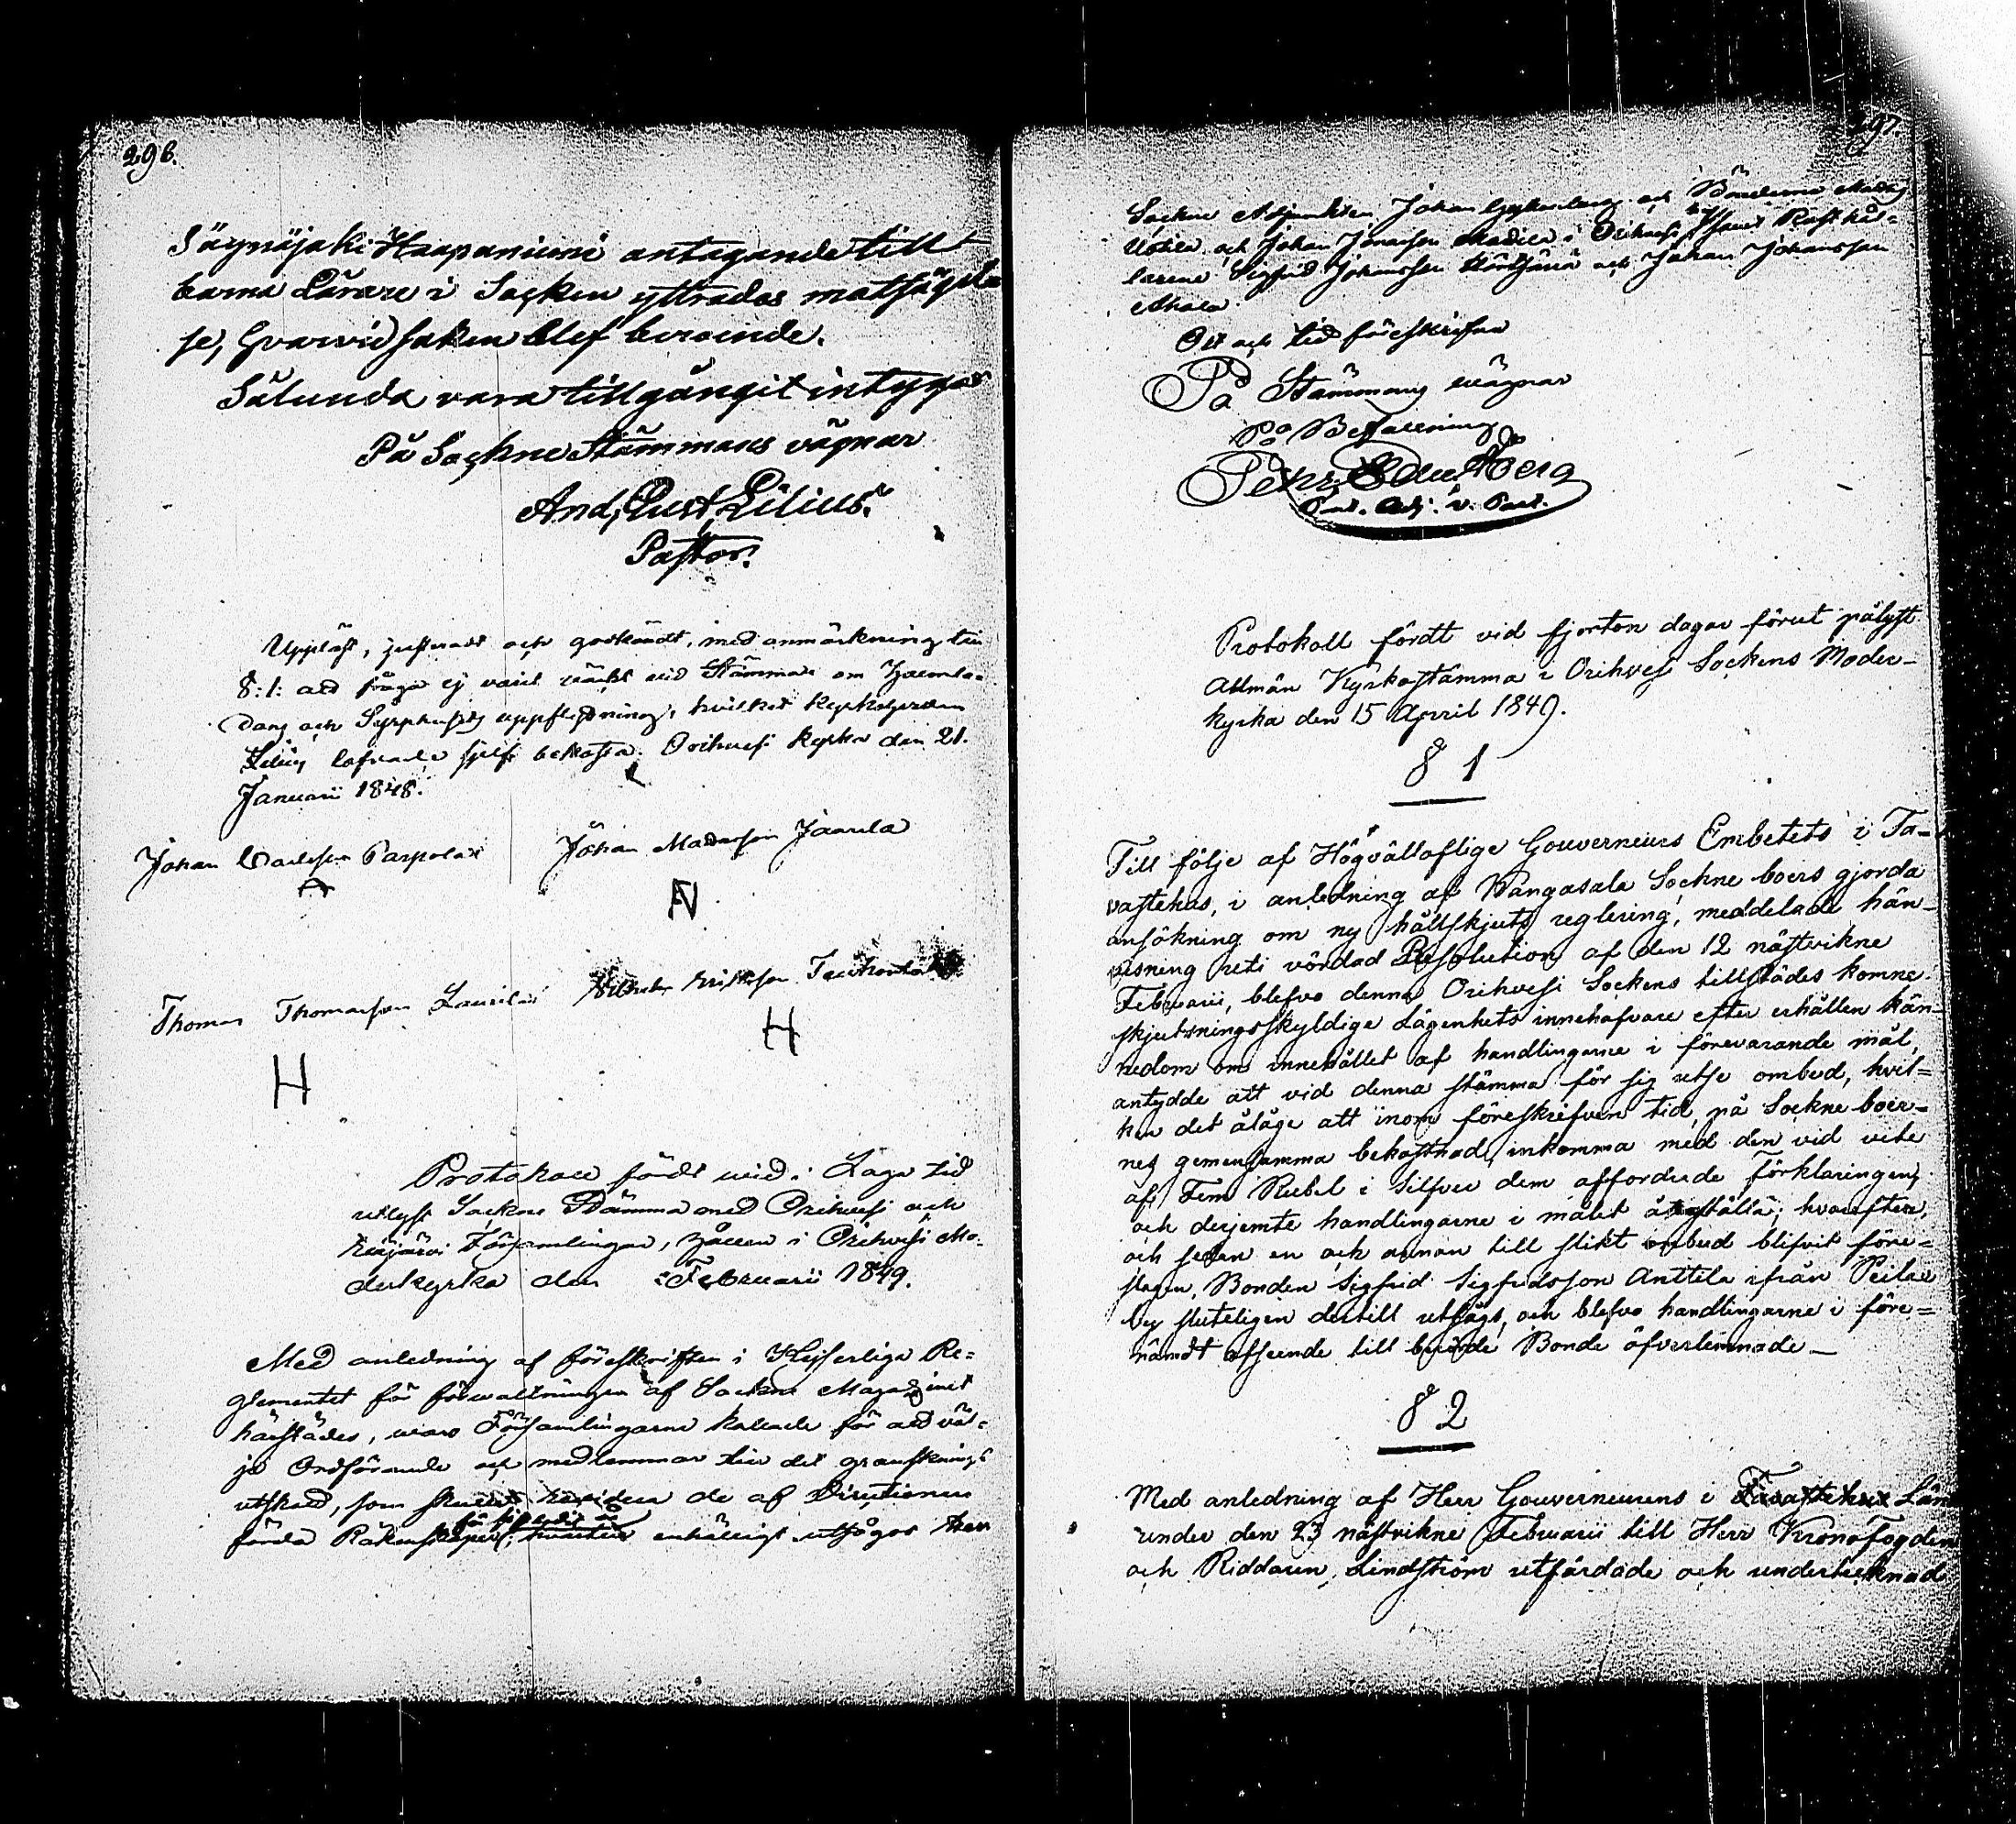 296.
Sägnäjaki Haapaniemi antagande till
barna Lärare i Socken yttrades motsägel
se, hvarvid saken blef beroende.
Sålunda vara tillgångit intygas
På Sockne Stämmans vägnar
And, Gust, Lilius.
Pastor.
Uppläst, justeradt och godkändt, med anmärkning till
§:1: att fråga ej varit väckt vid Stämman om
dans och uppflyttning, hvilket Kyrkoherden
Lilius lofvade sjelf bekosta. Orihvesi Kyrka den 21.
Januarii 1848.
Johan Carlsson Parpola Johan Madsson Jaavla
Thomas Thomasson Laurila Eriksson
H H
Protokoll fördt vid i Laga tid
utlyst Sockne Stämma med Orihvesi och
Församlingar, hållen i Orihvesi Mo-
derkyrka den Februarii 1849.
Med anledning af föreskriften i Kejserliga Re-
glementet för förvaltningen af Sockne Magazinet
härstädes, voro Församlingarne kallade för att väl-
ja Ordförande och medlemmar till det gransknings
utskott, som skulle revidera de af Directionen
förda Räkenskaper, enhälligt utsågos
297.
Sockne Adjunkten Johan och Bönderne
Uotila och Johan Jönsson Madila i Orihvesi samt Rusthål-
larene Sigfrid Johansson och Johan Johansson
Ahola
Ort och tid föreskrefne
På Stämmans vägnar
På Befallning
Pehr Edv. Åberg
Past. Adj. v. Past.
Protokoll fördt vid fjorton dagar förut pålyst
Allmän Kyrkostämma i Orihvesi Sockens Moder-
kyrka den 15 April 1849.
§ 1
Till följe af Högvälloflige Gouverneurs Embetets i Ta-
vastehus, i anledning af Kangasala Sockne boers gjorda
ansökning om ny hållskjuts reglering, meddelade hän-
visning uti vördad Resolution af den 12 nästvikne
Februarii, blefvo denna Orihvesi Sockens tillstädes komne
skjutsningsskyldige Lägenhets innehafvare efter erhållen kän-
nedom om innehållet af handlingarne i förevarande mål,
antydde att vid denna stämma för sig utse ombud, hvil-
ken det åläge att inom föreskrifven tid, på Sockne boer-
nes gemensamma bekostnad, inkomma med den vid vite
af Fem Rubel i Silfver dem affordrade Förklaringen,
och derjemte handlingarne i målet återställa; hvarefter,
och sedan en och annan till slikt ombud blifvit före-
slagen, Bonden Sigfrid Sigfridsson Anttila ifrån
by sluteligen dertill utsågs, och blefvo handlingarne i före-
nämdt afseende till berörde Bonde öfverlemnade –
§ 2
Med anledning af Herr Gouverneurens i Tavastehus Län
under den 23 nästvikne Februarii till Herr Kronofogden
och Riddaren Lindström utfärdade och undertecknad